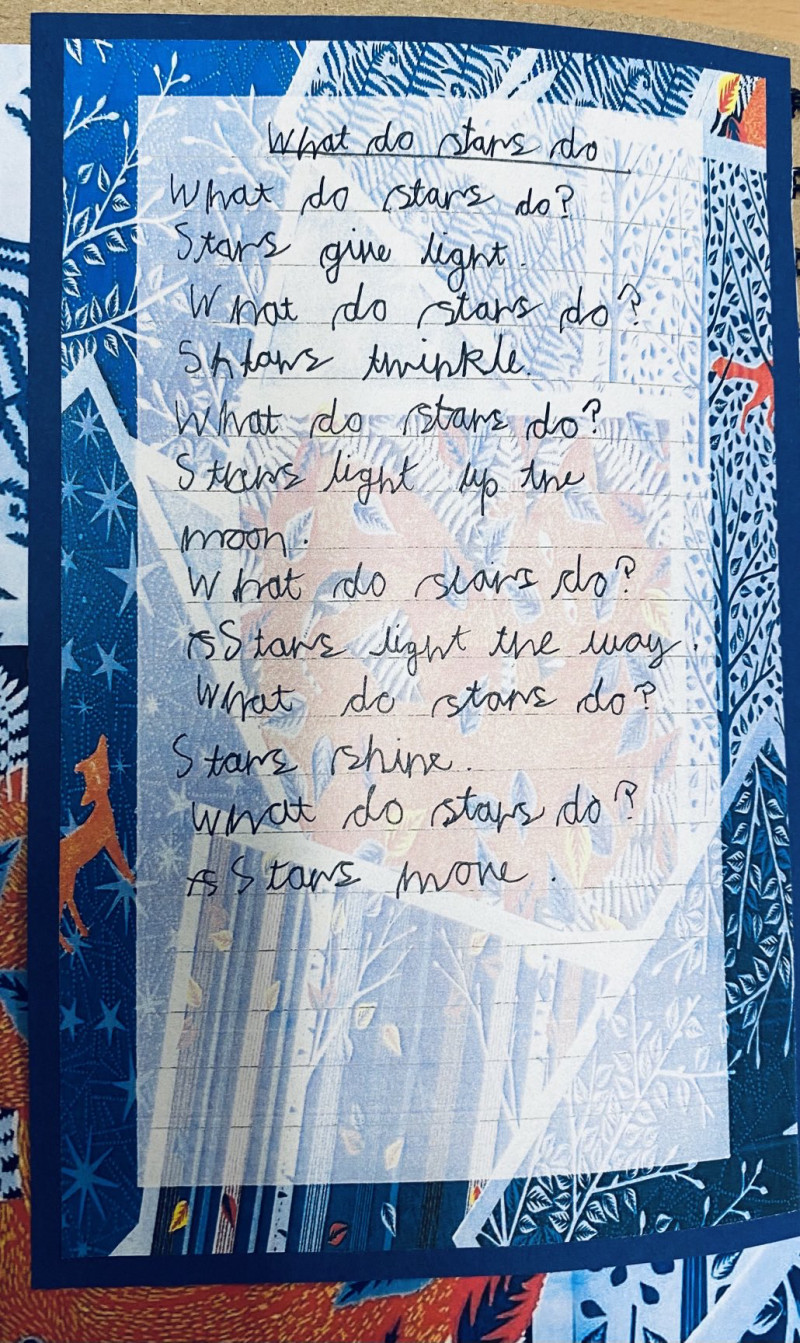 What do stars do
What do stars do?
Stars give light.
What do stars do?
Shtars twinkle.
What do stars do?
Stars light up the
moon.
What do stars do?
sStars light the way.
What do stars do?
Stars shine.
What do stars do?
sStars move.